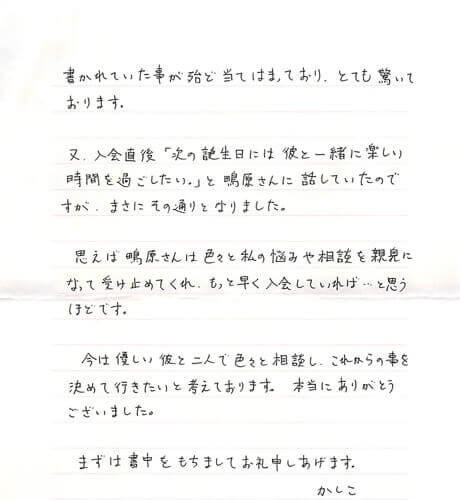 書かれていた事が殆ど当てはまっており、とても驚いて
おります。
又、入会直後「次の誕生日には彼と一緒に楽しい
時間を過ごしたい。」と鴫原さんに話していたので
すが、まさにその通りとなりました。
思えば鴫原さんは色々と私の悩みや相談を親身に
なって受け止めてくれ、もっと早く入会していれば…と思う
ほどです。
今は優しい彼と二人で色々と相談し、これからの事を
決めて行きたいと考えております。本当にありがとう
ございました。
まずは書中をもちましてお礼申しあげます。
かしこ